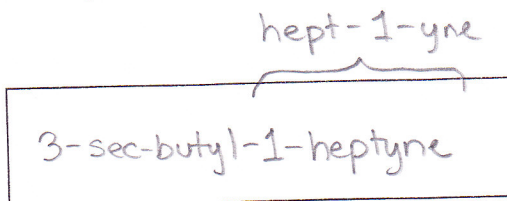 hept-1-yne
3-sec-butyl-1-heptyne